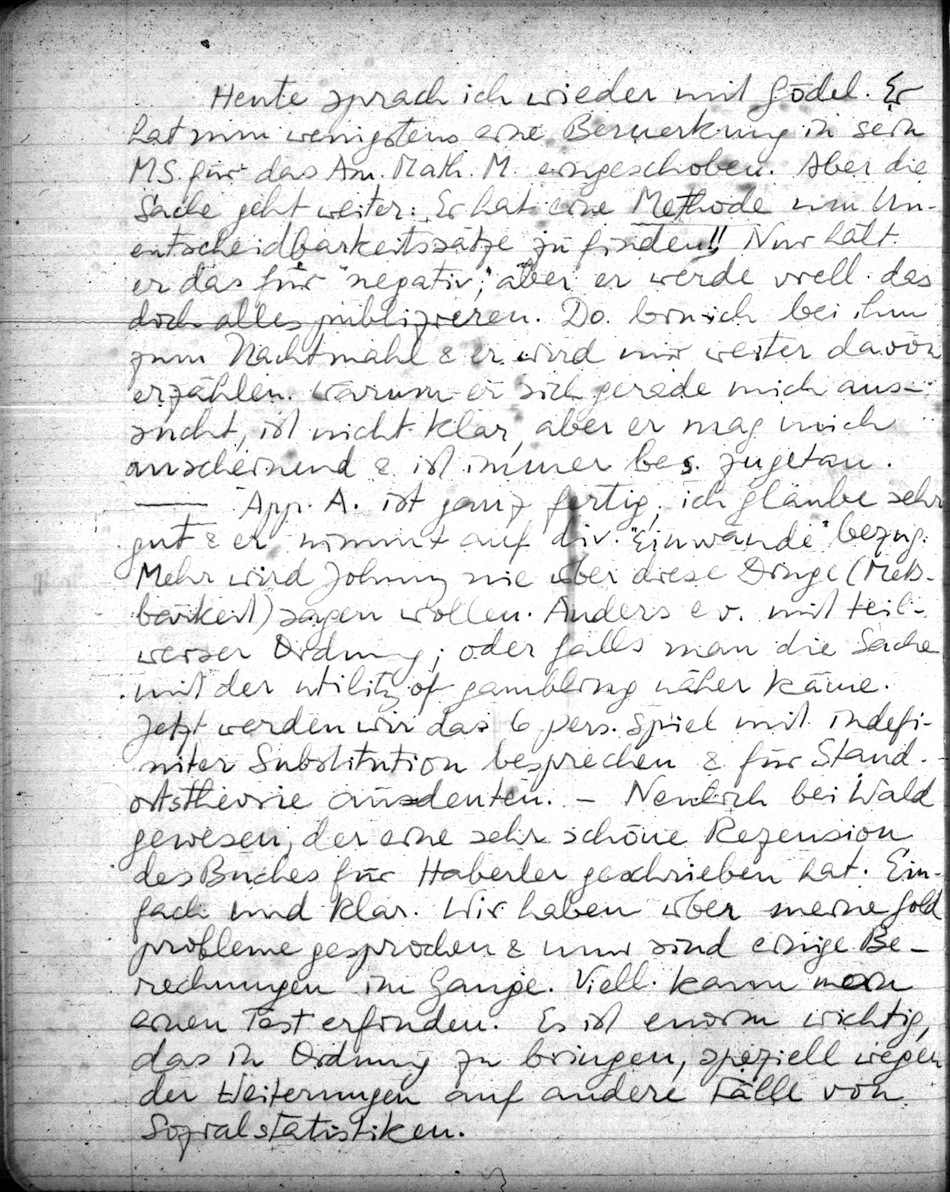 Heute sprach ich wieder mit Gödel. Er
hat nun wenigstens eine Bemerkung in sein
MS. für das Am. Math. M. eingeschoben. Aber die
Sache geht weiter: Er hat eine Methode um Un-
entscheidbarkeitssätze zu finden!! Nur hält
er das für "negativ", aber er werde viell. das
doch alles publizieren. Do. bin ich bei ihm
zum Nachtmahl & er wird mir weiter davon
erzählen. Warum er sich gerade mich aus-
sucht, ist nicht klar, aber er mag mich
anscheinend & ist immer bes. zugetan.
— App. A. ist ganz fertig, ich glaube sehr
gut & er nimmt auf div. "Einwände" bezug.
Mehr wird Johnny nie über diese Dinge (Mess-
barkeit) sagen wollen. Anders ev. mit teil-
weiser Ordnung; oder falls man die Sache
mit der utility of gambling näher käme.
Jetzt werden wir das 6 pers. Spiel mit indefi-
niter Substitution besprechen & für Stand-
ortstheorie ausdeuten. – Neulich bei Wald
gewesen, der eine sehr schöne Rezension
des Buches für Haberler geschrieben hat. Ein-
fach und klar. Wir haben über meine Gold
probleme gesprochen & nun sind einige Be-
rechnungen im Gange. Viell. kann man
einen Test erfinden. Es ist enorm wichtig,
das in Ordnung zu bringen, speziell wegen
der Weiterungen auf andere Fälle von
Sozialstatistiken.